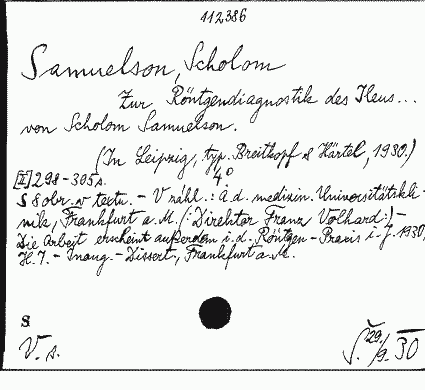 112386
Samuelson, Scholom
Zur Röntgendiagnostik des Ileus...
von Scholom Samuelson.
(In Leipzig, typ. Breitkopf & Härtel, 1930.)
4°
[II] 298-305 s.
S 8 obr. v textu. - V záhl.: A. d. medizin. Universitätskli-
nik, Frankfurt a. M. (: Direktor Franz Volhard:) -
Die Arbeit erscheint außerdem i. d. Röntgen-Praxis i. J. 1930,
H. 7. - Inaug.-Dissert., Frankfurt a. M.
S
V. s.
29./9. 30